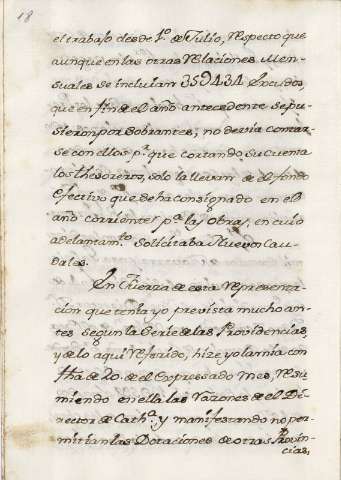 18
el trabajo desde 1º de Julio, respecto que
aunque en las otras relaciones Men-
suales se incluian 359434 Escudos,
que en fin de el año antecedente se pu-
sieron por sobrantes, no devia contar-
se con ellos p.r que cortando, su cuenta
los thesoreros, solo la llevan de el fondo
efectivo que se ha consignado en el
año corriente p.a las obras, en cuio
adelantam.to solicitaba nuevos Cau-
dales.
En fuerza de esta representa-
cion que tenia yo prevista mucho an-
tes segun la serie de las Providencias,
y de lo aqui referido, hize yo la mia con
fha de 20. de el expressado mes, resu-
miendo en ella las razones de el Di-
rector de Carth.a y manifestando no per-
mitian las Dotaciones de otras Provin-
cias,